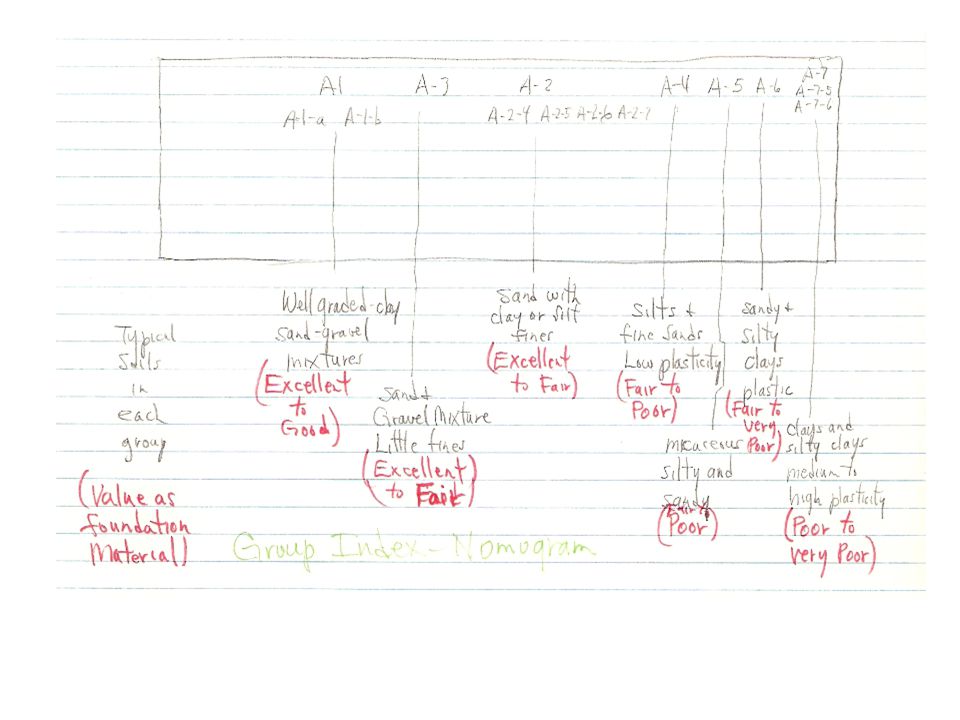 A1 A-3 A-2 A-4 A-5 A-6 A-7
A-7-5
A-7-6
A-1-a A-1-b A-2-4 A-2-5 A-2-6 A-2-7
Typical
Soils
in
each
group
(Value as
foundation
Material)
Well graded-clay
sand-gravel
mixtures
(Excellent
to
Good)
Sand &
Gravel Mixture
Little fines
(Excellent
to Fair)
Sand with
clay or silt
fines
(Excellent
to Fair)
Silts &
fine sands
Low plasticity
(Fair to
Poor)
micaceous
silty and
sandy
(Fair to
Poor)
sandy &
silty
clays
plastic
(Fair to
very
Poor)
clays and
silty clays
medium to
high plasticity
(Poor to
very Poor)
Group Index-Nomogram